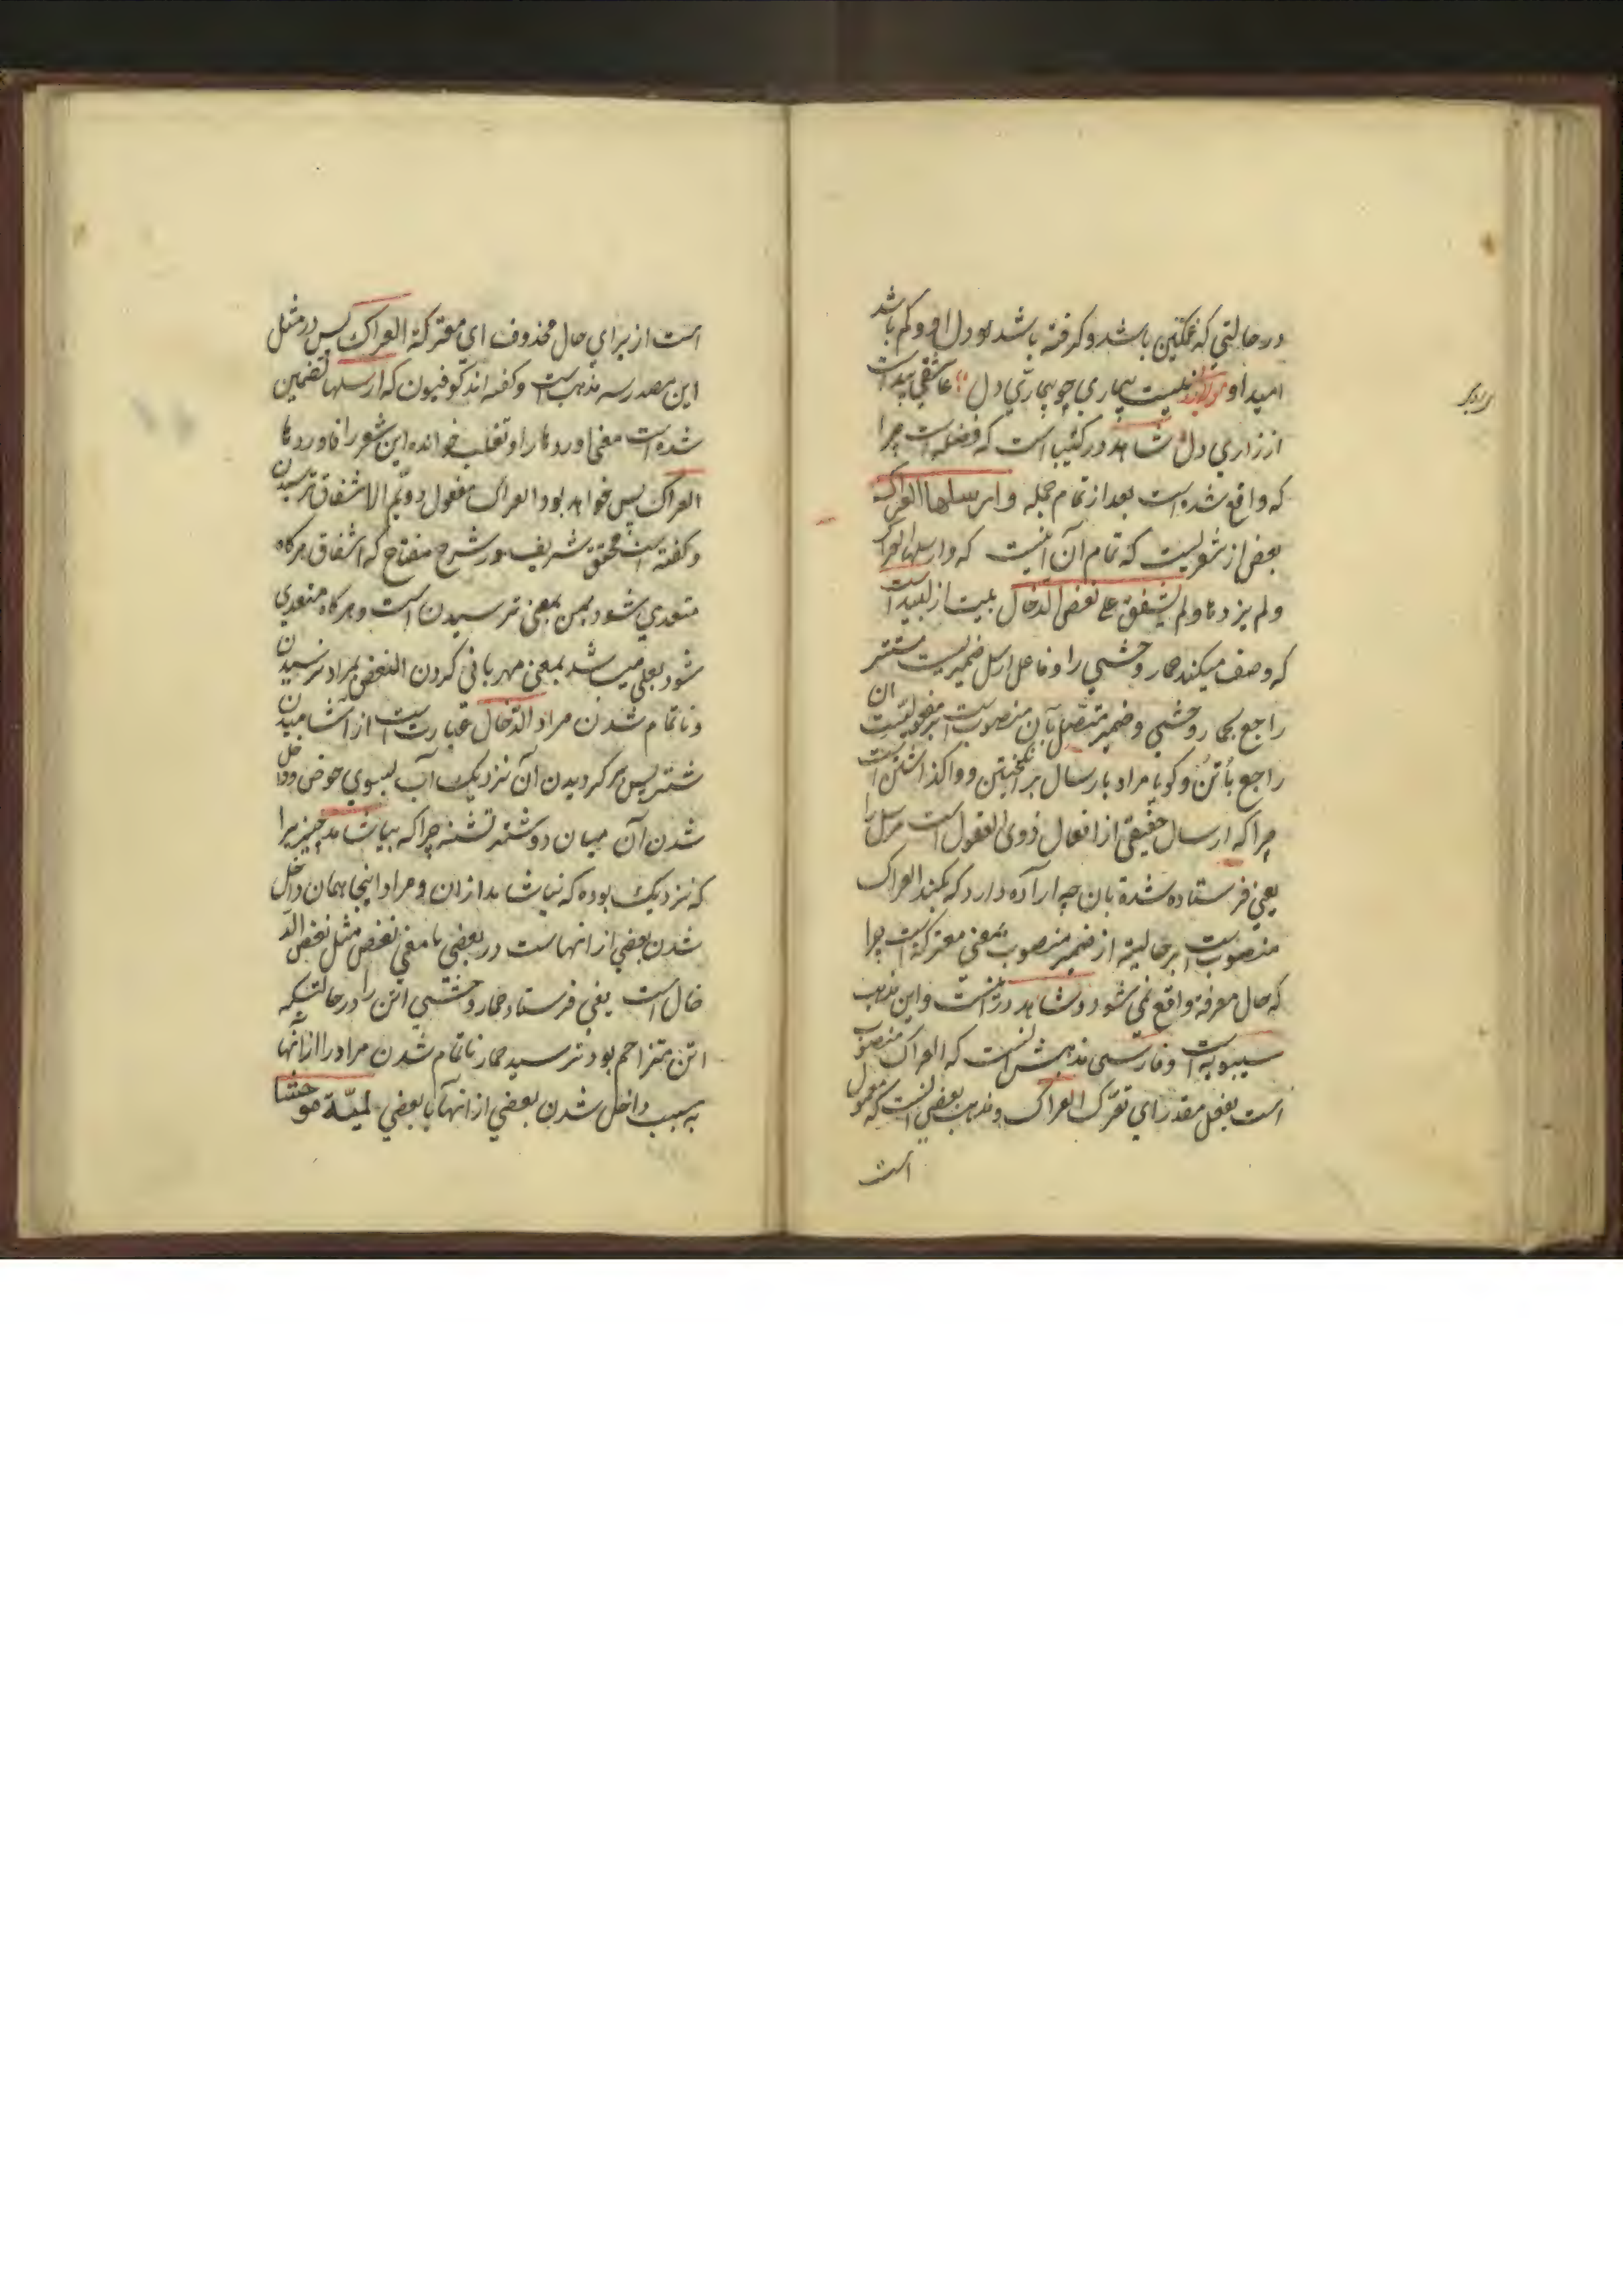 در حالتی که غمکین باشد و کرفته باشد بود دل او و کم باشد
امید او نیست بیماری چو بیماری دل عاشقی پیداست
از زاری دل شاهد در کئیبا است که فضله است چرا
که واقع شده است بعد از تمام جمله و ارسلها العراک
بعض از شعریست که تمام آن اینست که وارسلها العراک
ولم یزدها ولم یشفق علی نغض الدخال بیت از لبید است
که وصف میکند حمار وحشی را و فاعل ارسل ضمیریست مستتر
راجع بحمار وحشی و ضمیر متصل بآن منصوبست بر مفعولیت ان
راجع باُتُن و کویا مراد بارسال بر انکیختن و واکذاشتن است
چرا که ارسال حقیقی از افعال ذوی العقول است مرسل را
یعنی فرستاده شدة بان چه اراده دارد که بکند العراک
منصوبست بر حالیة از ضمیر منصوب بمعنی معترکة است چرا
که حال معرفة واقع نمی شود و شاهد در اینست و این مذهب
سیبویه است و فارسی مذهبش انست که العراک منصوب
است بفعل مقدر ای تعترک العراک و مذهب بعضی انست که معمول
است
است از برای حال محذوف ای معترکة العراک پس در مثل
این مصدر سه مذهب است و کفته اند کوفیون که ارسلها تضمین
شده است معنی اوردها را و ثعلب خوانده این شعر را فاوردها
العراک پس خواهد بود العراک مفعول دویم الاشفاق ترسیدن
و کفته است محقق شریف در شرح مفتاح که اشفاق هرکاه
متعدی شود بمن بمعنی ترسیدن است و هرکاه متعدی
شود بعلی میباشد بمعنی مهربانی کردن النغض بمراد نرسیدن
و ناتمام شدن مراد الدخال عبارتست از آشامیدن
شتر پس برکردیدن آن نزدیک آب بسوی حوض و داخل
شدن آن میان دو شتر تشنه چرا که بیاشامد چیزیرا
که نزدیک بوده که نیاشامد ازان و مراد اینجا همان داخل
شدن بعضی از انهاست در بعضی با معنی نغض مثل نغض الد
خال است یعنی فرستاد حمار وحشی اتن را در حالتیکه
اتن متزاحم بود نترسید حمار ناتمام شدن مراد را از آنها
به سبب داخل شدن بعضی از انها با بعضی لمیّة موحشا